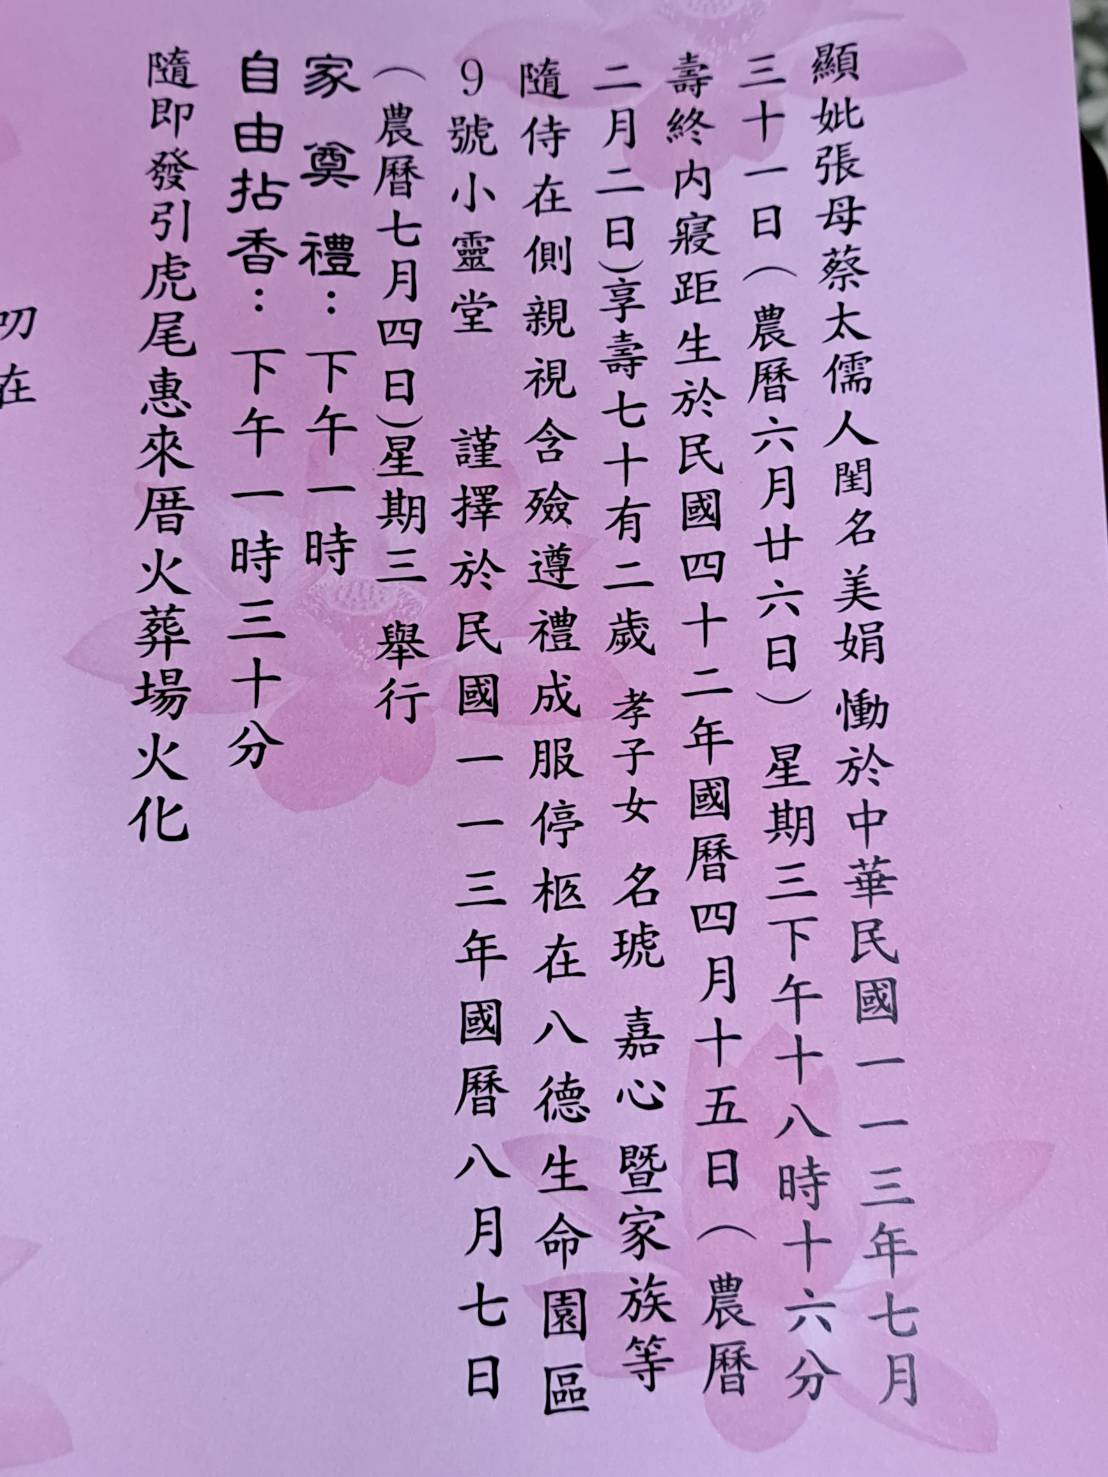 顯妣張母蔡太儒人閨名美娟慟於中華民國一一三年七月
三十一日(農曆六月廿六日)星期三下午十八時十六分
壽終內寢距生於民國四十二年國曆四月十五日(農曆
二月二日)享壽七十有二歲 孝子女 名琥 嘉心暨家族等
隨侍在側親視含殮遵禮成服停柩在八德生命園區
9號小靈堂 謹擇於民國一一三年國曆八月七日
(農曆七月四日)星期三舉行
家奠禮：下午一時
自由拈香：下午一時三十分
隨即發引虎尾惠來厝火葬場火化
叨在